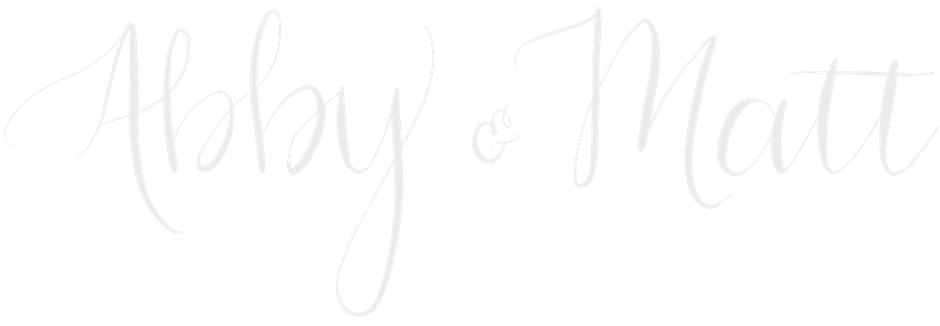 Abby & Matt